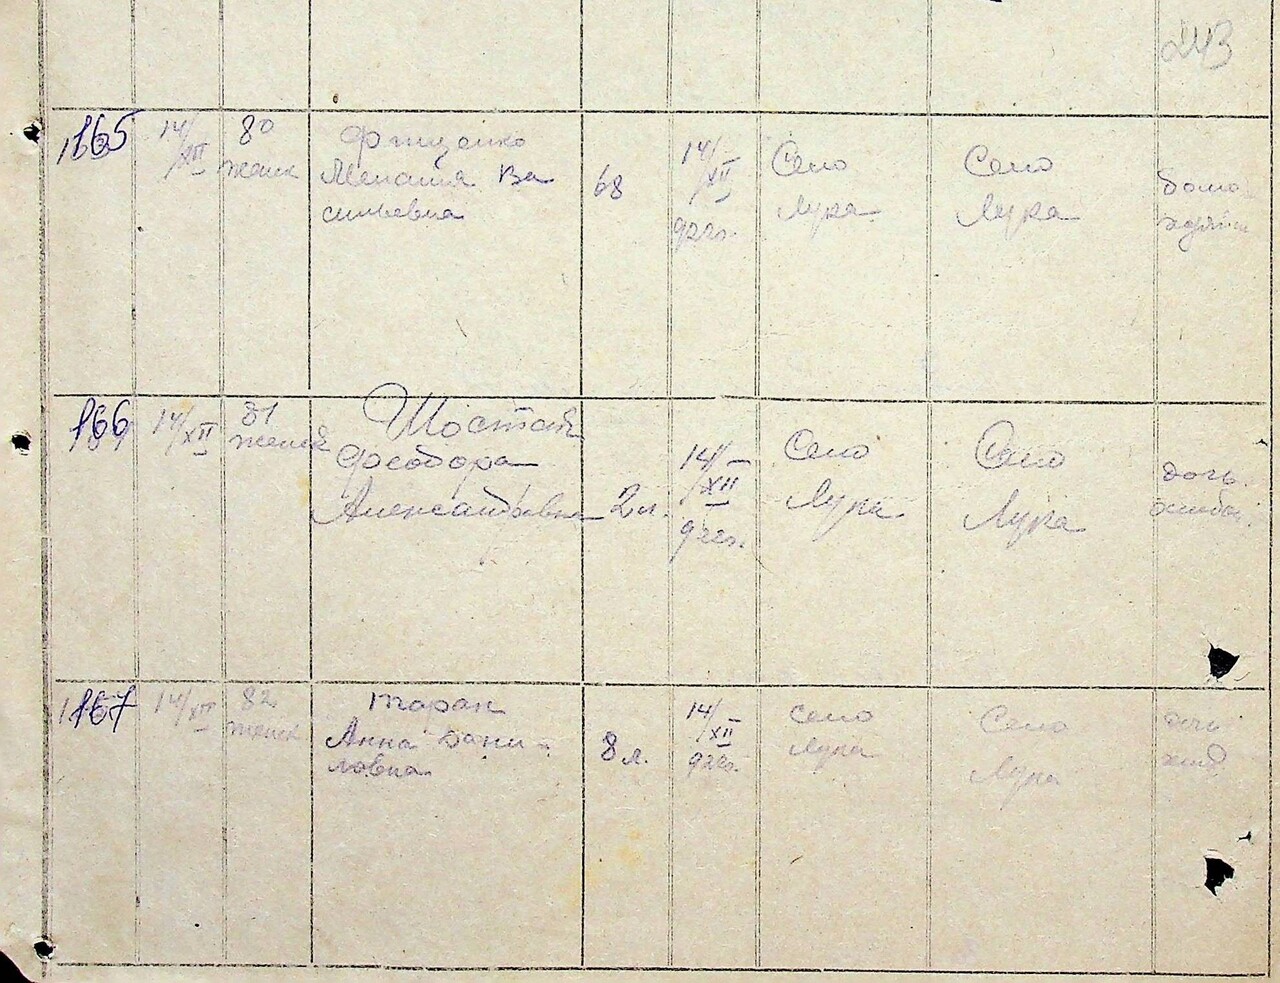 243
165
14/XII
80
женск
Фищенко
Мелания Ва
сильевна
68
14/XII
922г.
Село
Лука
Село
Лука
домо
166
14/XII
81
женск
Шостак
Феодора
Александровна
2 л.
14/XII
922г.
Село
Лука
Село
Лука
дочь
167
14/XII
82
женск
Таран
Анна Дани-
ловна
8 л.
14/XII
922г.
село
Лука
Село
Лука
дочь